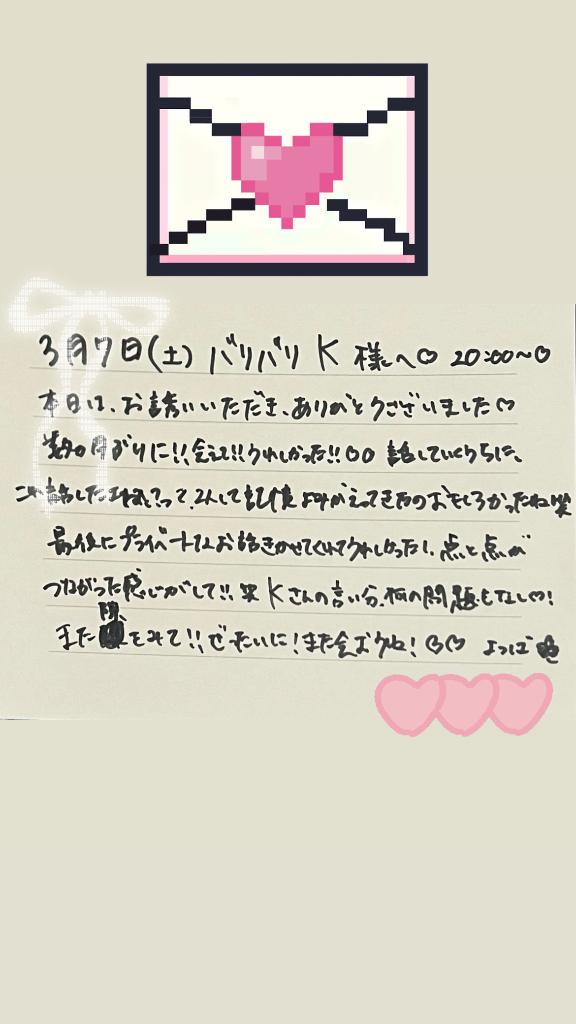 3月7日(土) バリバリ K 様へ♡ 20:00〜♡
本日は、お誘いいただき、ありがとうございました♡
数ヶ月ぶりに!!会えて!!うれしかった!!○○ 話していくうちに、
この話したっけ?って、2人して記憶よみがえってきたのおもしろかったね笑
最後にプライベートなお話きかせてくれてうれしかったし、点と点が
つながった感じがして!!笑 Kさんの言い分、何の問題もなし♡!
また隙をみて!!ぜったいに!また会おうね!♡♡ よつば